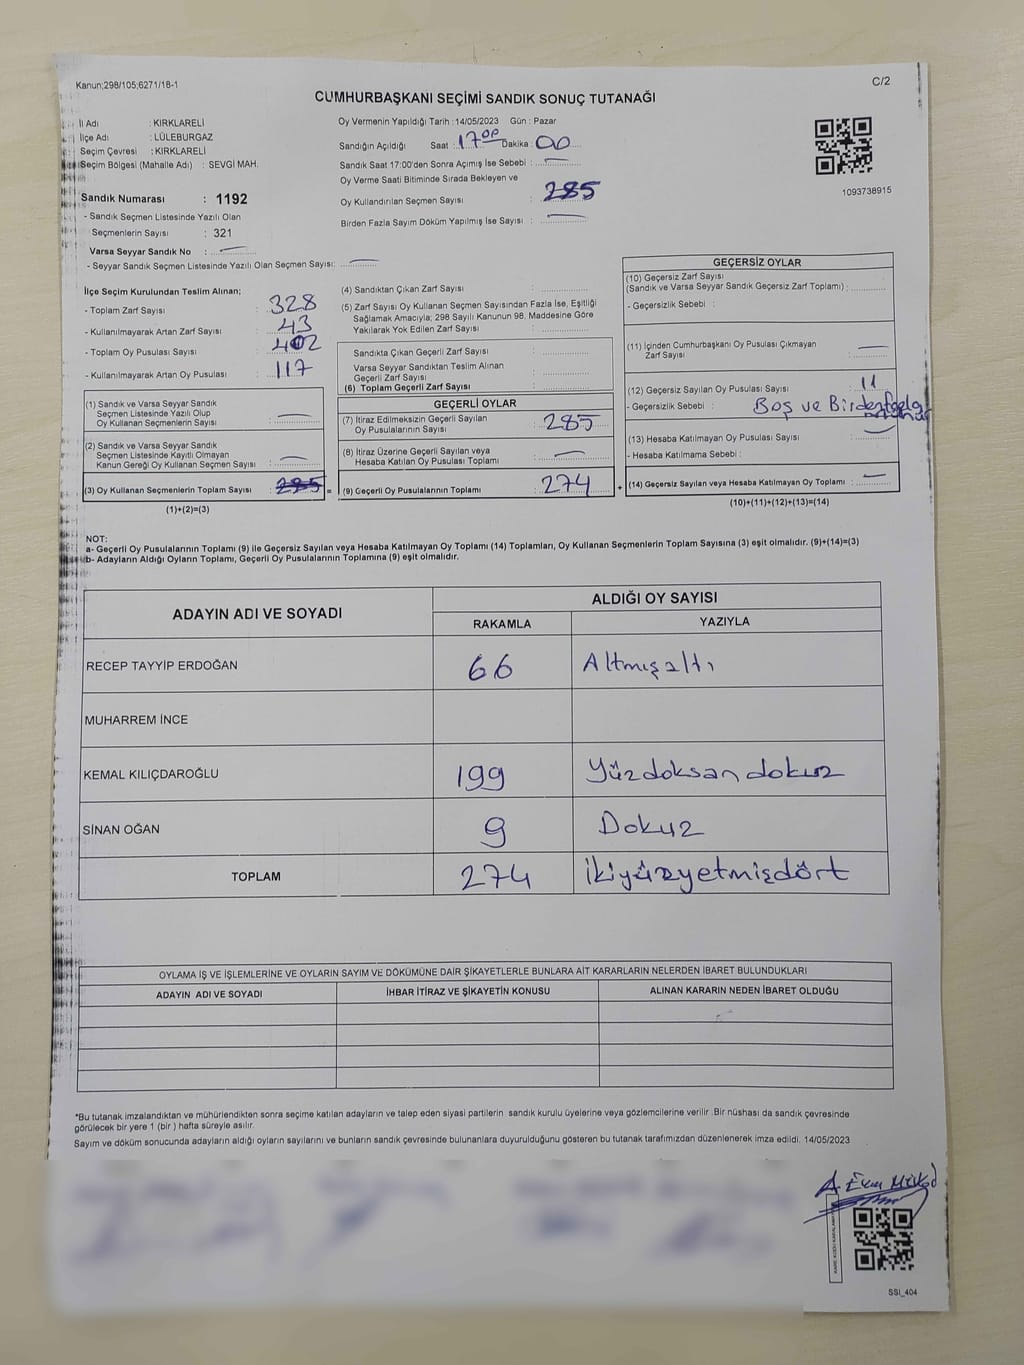 Kanun;298/105;6271/18-1
C/2
CUMHURBAŞKANI SEÇİMİ SANDIK SONUÇ TUTANAĞI
İl Adı : KIRKLARELİ
İlçe Adı : LÜLEBURGAZ
Seçim Çevresi : KIRKLARELİ
Seçim Bölgesi (Mahalle Adı) : SEVGİ MAH.
Sandık Numarası : 1192
- Sandık Seçmen Listesinde Yazılı Olan
Seçmenlerin Sayısı : 321
Varsa Seyyar Sandık No :
- Seyyar Sandık Seçmen Listesinde Yazılı Olan Seçmen Sayısı:
Oy Vermenin Yapıldığı Tarih :14/05/2023 Gün : Pazar
Sandığın Açıldığı Saat : 17 00 Dakika : 00
Sandık Saat 17:00'den Sonra Açımış İse Sebebi :
Oy Verme Saati Bitiminde Sırada Bekleyen ve
Oy Kullandırılan Seçmen Sayısı : 285
Birden Fazla Sayım Döküm Yapılmış İse Sayısı :
1093738915
İlçe Seçim Kurulundan Teslim Alınan;
- Toplam Zarf Sayısı : 328
- Kullanılmayarak Artan Zarf Sayısı : 43
- Toplam Oy Pusulası Sayısı : 402
- Kullanılmayarak Artan Oy Pusulası : 117
(1) Sandık ve Varsa Seyyar Sandık
Seçmen Listesinde Yazılı Olup
Oy Kullanan Seçmenlerin Sayısı :
(2) Sandık ve Varsa Seyyar Sandık
Seçmen Listesinde Kayıtlı Olmayan
Kanun Gereği Oy Kullanan Seçmen Sayısı :
(3) Oy Kullanan Seçmenlerin Toplam Sayısı : 285 =
(1)+(2)=(3)
(4) Sandıktan Çıkan Zarf Sayısı :
(5) Zarf Sayısı Oy Kullanan Seçmen Sayısından Fazla İse, Eşitliği
Sağlamak Amacıyla; 298 Sayılı Kanunun 98. Maddesine Göre
Yakılarak Yok Edilen Zarf Sayısı :
Sandıkta Çıkan Geçerli Zarf Sayısı :
Varsa Seyyar Sandıktan Teslim Alınan
Geçerli Zarf Sayısı :
(6) Toplam Geçerli Zarf Sayısı :
GEÇERLİ OYLAR
(7) İtiraz Edilmeksizin Geçerli Sayılan
Oy Pusulalarının Sayısı : 285
(8) İtiraz Üzerine Geçerli Sayılan veya
Hesaba Katılan Oy Pusulası Toplamı :
(9) Geçerli Oy Pusulalarının Toplamı : 274 +
GEÇERSİZ OYLAR
(10) Geçersiz Zarf Sayısı
(Sandık ve Varsa Seyyar Sandık Geçersiz Zarf Toplamı) :
- Geçersizlik Sebebi :
(11) İçinden Cumhurbaşkanı Oy Pusulası Çıkmayan
Zarf Sayısı :
(12) Geçersiz Sayılan Oy Pusulası Sayısı : 11
- Geçersizlik Sebebi : Boş ve Birden fazla
(13) Hesaba Katılmayan Oy Pusulası Sayısı :
- Hesaba Katılmama Sebebi :
(14) Geçersiz Sayılan veya Hesaba Katılmayan Oy Toplamı :
(10)+(11)+(12)+(13)=(14)
NOT:
a- Geçerli Oy Pusulalarının Toplamı (9) ile Geçersiz Sayılan veya Hesaba Katılmayan Oy Toplamı (14) Toplamları, Oy Kullanan Seçmenlerin Toplam Sayısına (3) eşit olmalıdır. (9)+(14)=(3)
b- Adayların Aldığı Oyların Toplamı, Geçerli Oy Pusulalarının Toplamına (9) eşit olmalıdır.
ADAYIN ADI VE SOYADI
ALDIĞI OY SAYISI
RAKAMLA YAZIYLA
RECEP TAYYİP ERDOĞAN 66 Altmışaltı
MUHARREM İNCE
KEMAL KILIÇDAROĞLU 199 Yüzdoksandokuz
SİNAN OĞAN 9 Dokuz
TOPLAM 274 İkiyüzyetmişdört
OYLAMA İŞ VE İŞLEMLERİNE VE OYLARIN SAYIM VE DÖKÜMÜNE DAİR ŞİKAYETLERLE BUNLARA AİT KARARLARIN NELERDEN İBARET BULUNDUKLARI
ADAYIN ADI VE SOYADI İHBAR İTİRAZ VE ŞİKAYETİN KONUSU ALINAN KARARIN NEDEN İBARET OLDUĞU
*Bu tutanak imzalandıktan ve mühürlendikten sonra seçime katılan adayların ve talep eden siyasi partilerin sandık kurulu üyelerine veya gözlemcilerine verilir .Bir nüshası da sandık çevresinde
görülecek bir yere 1 (bir ) hafta süreyle asılır.
Sayım ve döküm sonucunda adayların aldığı oyların sayılarını ve bunların sandık çevresinde bulunanlara duyurulduğunu gösteren bu tutanak tarafımızdan düzenlenerek imza edildi. 14/05/2023
SSI_404